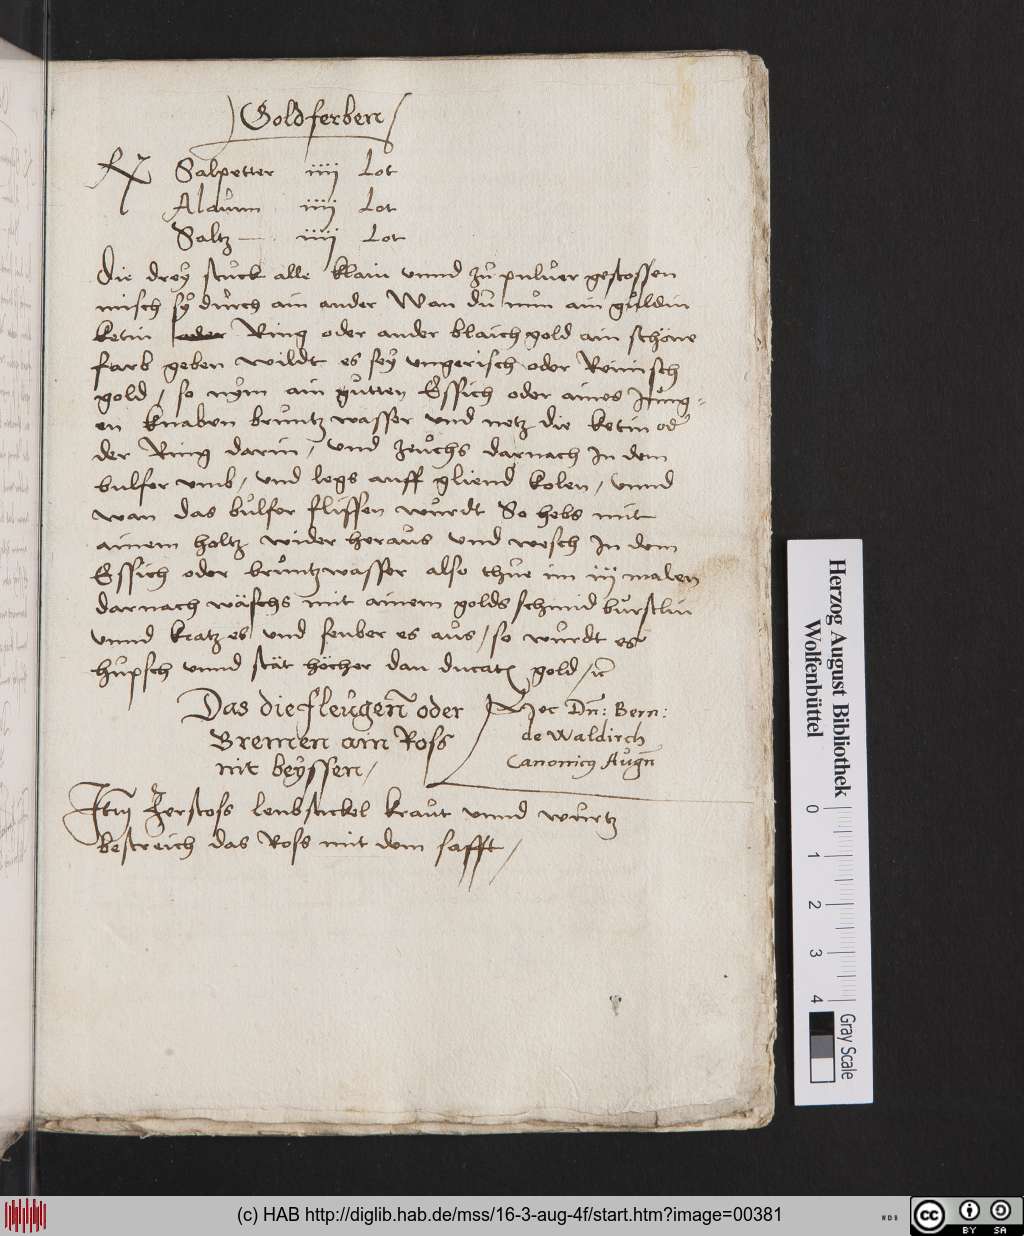 Goldferben
Rx Salpetter iiij Lot
Alaun iiij Lot
Saltz iiij Lot
Die dreÿ stuck alle klain vnnd zů puluer gestossen
misch sÿ durch ain ander Wan dů nůn ain guldin
ketin oder Ring oder ander blaich gold ain schöne
farb geben wildt es seÿ vngerisch oder Reinisch
gold / so nÿm ain gůtten Essich oder aines Jung=
en knaben bruntz wasser vnd netz die ketin od
der Ring darin / vnd zeuchs darnach In dem
bulfer vmb / vnd legs auff gliend kolen / vnnd
wan das bulfer flissen wurdt So hebs mit
ainem holtz wider heraus vnd wesch In dem
Essich oder bruntzwasser also thue im iij malen
darnach wäschs mit ainem goldschmid burstlin
vnnd kratz es vnd seuber es aus / so wurdt es
hupsch vnnd stät höcher dan ducatn gold /
Das die fleugen oder
Bremen ain Ross
nit beÿssen /
Hec Dn: Bern:
de Waldirch
Canonicus Augn
Item Zerstoss lenbstickel kraut vnnd wurtz
bestreich das Ross mit dem safft /
Herzog August Bibliothek
Wolfenbüttel
0 1 2 3 4
Gray Scale
(c) HAB http://diglib.hab.de/mss/16-3-aug-4f/start.htm?image=00381
cc
BY SA